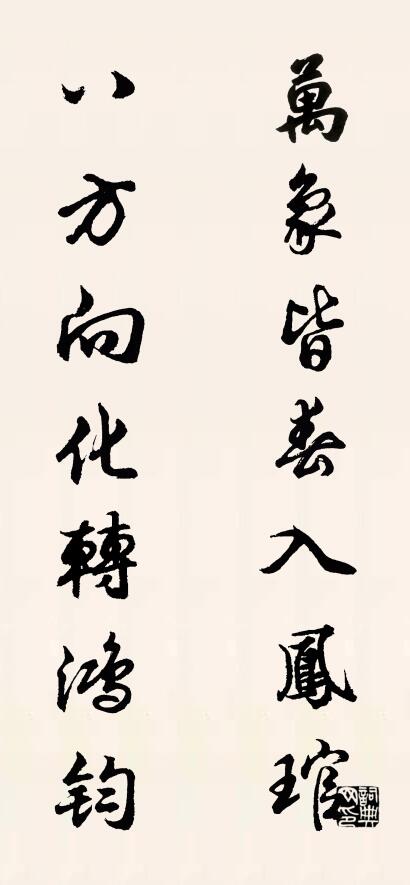 萬象皆春入鳳琯
八方向化轉鴻鈞